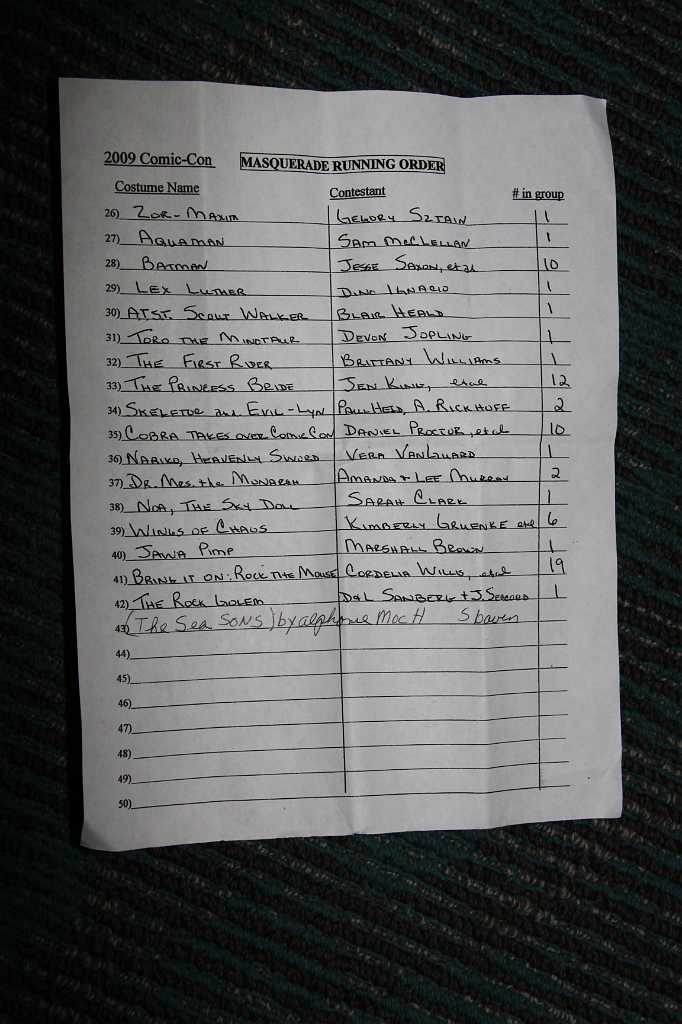 2009 Comic-Con MASQUERADE RUNNING ORDER
Costume Name Contestant # in group
26) Zor-Maxim Gegory Sztain 1
27) Aquaman Sam McClellan 1
28) Batman Jesse Saxon, et al 10
29) Lex Luther Dino Ignacio 1
30) AT.ST. Scout Walker Blair Heald 1
31) Toro the Minotaur Devon Jopling 1
32) The First Rider Brittany Williams 1
33) The Princess Bride Jen King, et al 12
34) Skeletor and Evil-Lyn Paul Held, A. Rickhoff 2
35) Cobra Takes over Comic Con Daniel Proctor, et al 10
36) Nariko, Heavenly Sword Vera VanGuard 1
37) Dr. Mrs. the Monarch Amanda + Lee Murray 2
38) Noa, The Sky Doll Sarah Clark 1
39) Wings of Chaos Kimberly Gruenke et al 6
40) Jawa Pimp Marshall Brown 1
41) Bring It On: Rock the Mouse Cordelia Willis, et al 19
42) The Rock Golem D+L Sanberg + J. 1
43) (The Sea SONS) by alphonse MocH 5
44)
45)
46)
47)
48)
49)
50)